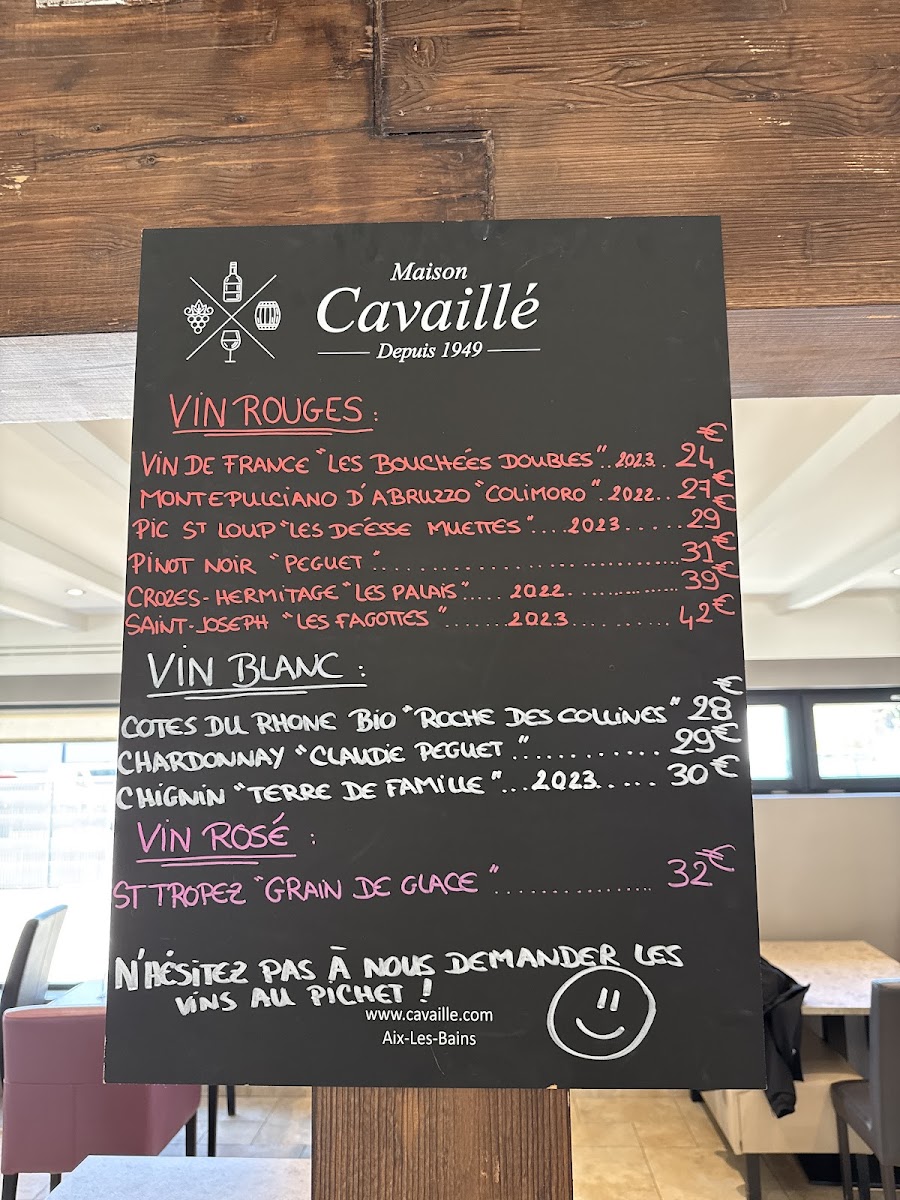 Maison
Cavaillé
Depuis 1949
VIN ROUGES :
VIN DE FRANCE "LES BOUCHÉES DOUBLES".. 2023.. 24€
MONTEPULCIANO D'ABRUZZO "COLIMORO". 2022.. 27€
PIC ST LOUP "LES DÉESSE MUETTES"....2023......29€
PINOT NOIR "PEGUET"..............................31€
CROZES-HERMITAGE "LES PALAIS".... 2022..............39€
SAINT-JOSEPH "LES FAGOTTES".......2023..........42€
VIN BLANC :
COTES DU RHONE BIO "ROCHE DES COLLINES" 28€
CHARDONNAY "CLAUDIE PEGUET"............ 29€
CHIGNIN "TERRE DE FAMILLE"...2023...... 30€
VIN ROSÉ :
ST TROPEZ "GRAIN DE GLACE"................ 32€
N'HÉSITEZ PAS À NOUS DEMANDER LES
VINS AU PICHET !
www.cavaille.com
Aix-Les-Bains